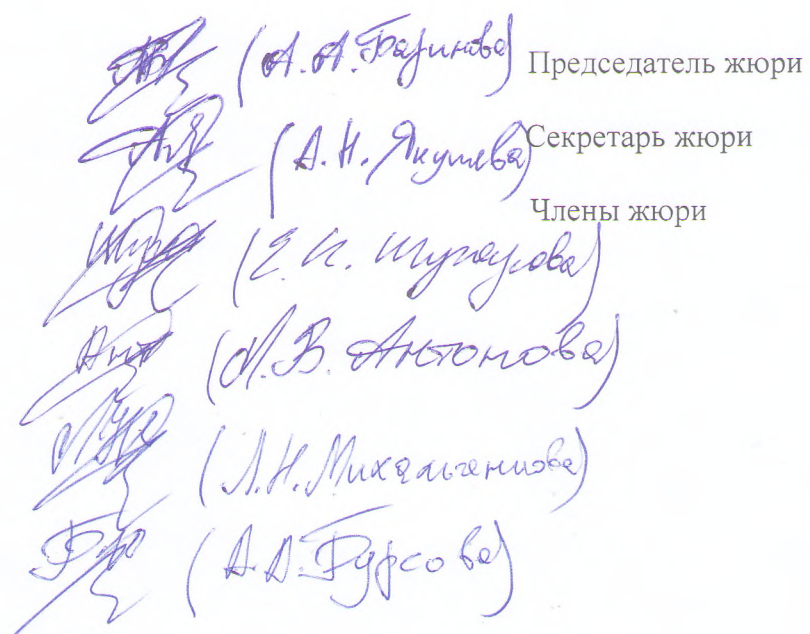 (А. А. Баринова) Председатель жюри
(А. Н. Якушева) Секретарь жюри
Члены жюри
(Е. И.
(М. В. Антонова)
(Л. Н. Михальченкова)
(А. А. Бурсова)